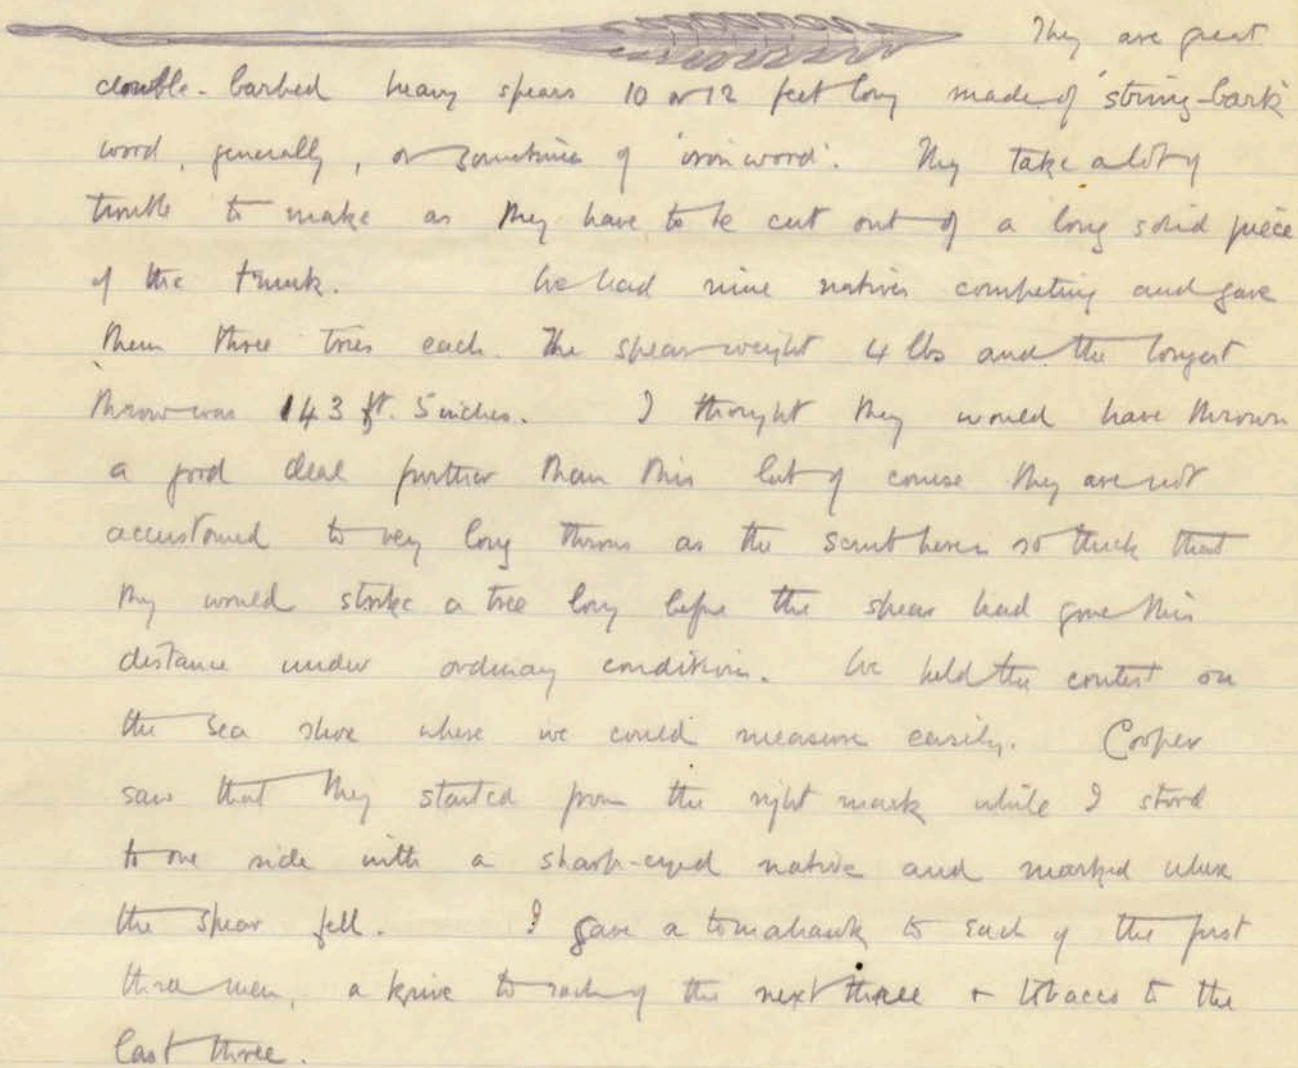 They are great
double-barbed heavy spears 10 or 12 feet long made of 'string-bark'
wood, generally, or sometimes of 'iron wood'. They take a lot of
trouble to make as they have to be cut out of a long solid piece
of the trunk. We had nine natives competing and gave
them three tries each. The spear weight 4 lbs and the longest
throw was 143 ft. 5 inches. I thought they would have thrown
a good deal further than this but of course they are not
accustomed to very long throws as the scrub here is so thick that
they would strike a tree long before the spear had gone this
distance under ordinary conditions. We held the contest on
the sea shore where we could measure easily. Cooper
saw that they started from the right mark while I stood
to one side with a sharp-eyed native and marked where
the spear fell. I gave a tomahawk to each of the first
three men, a knive to each of the next three + tobacco to the
last three.